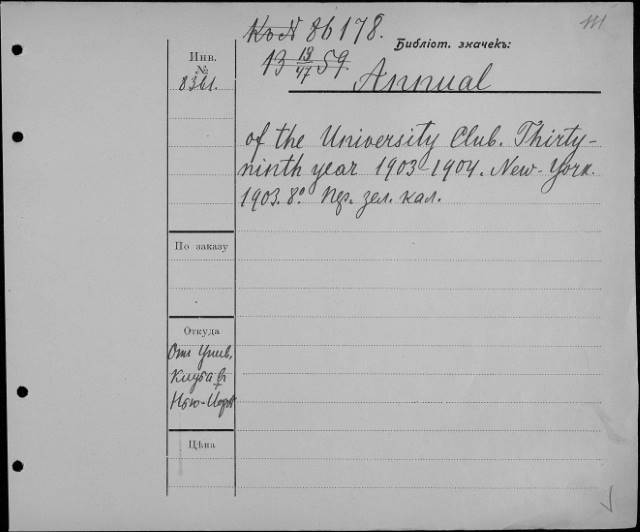 Къ № 86178.
Библіот. значекъ:
Инв.
№
8361.
13 18/47 59.
Annual
of the University Club. Thirty-
ninth year 1903-1904. New-York.
1903. 8°. Пер. зел. кал.
По заказу
Откуда
Отъ Унив.
Клуба въ
Нью-Іоркѣ
Цѣна